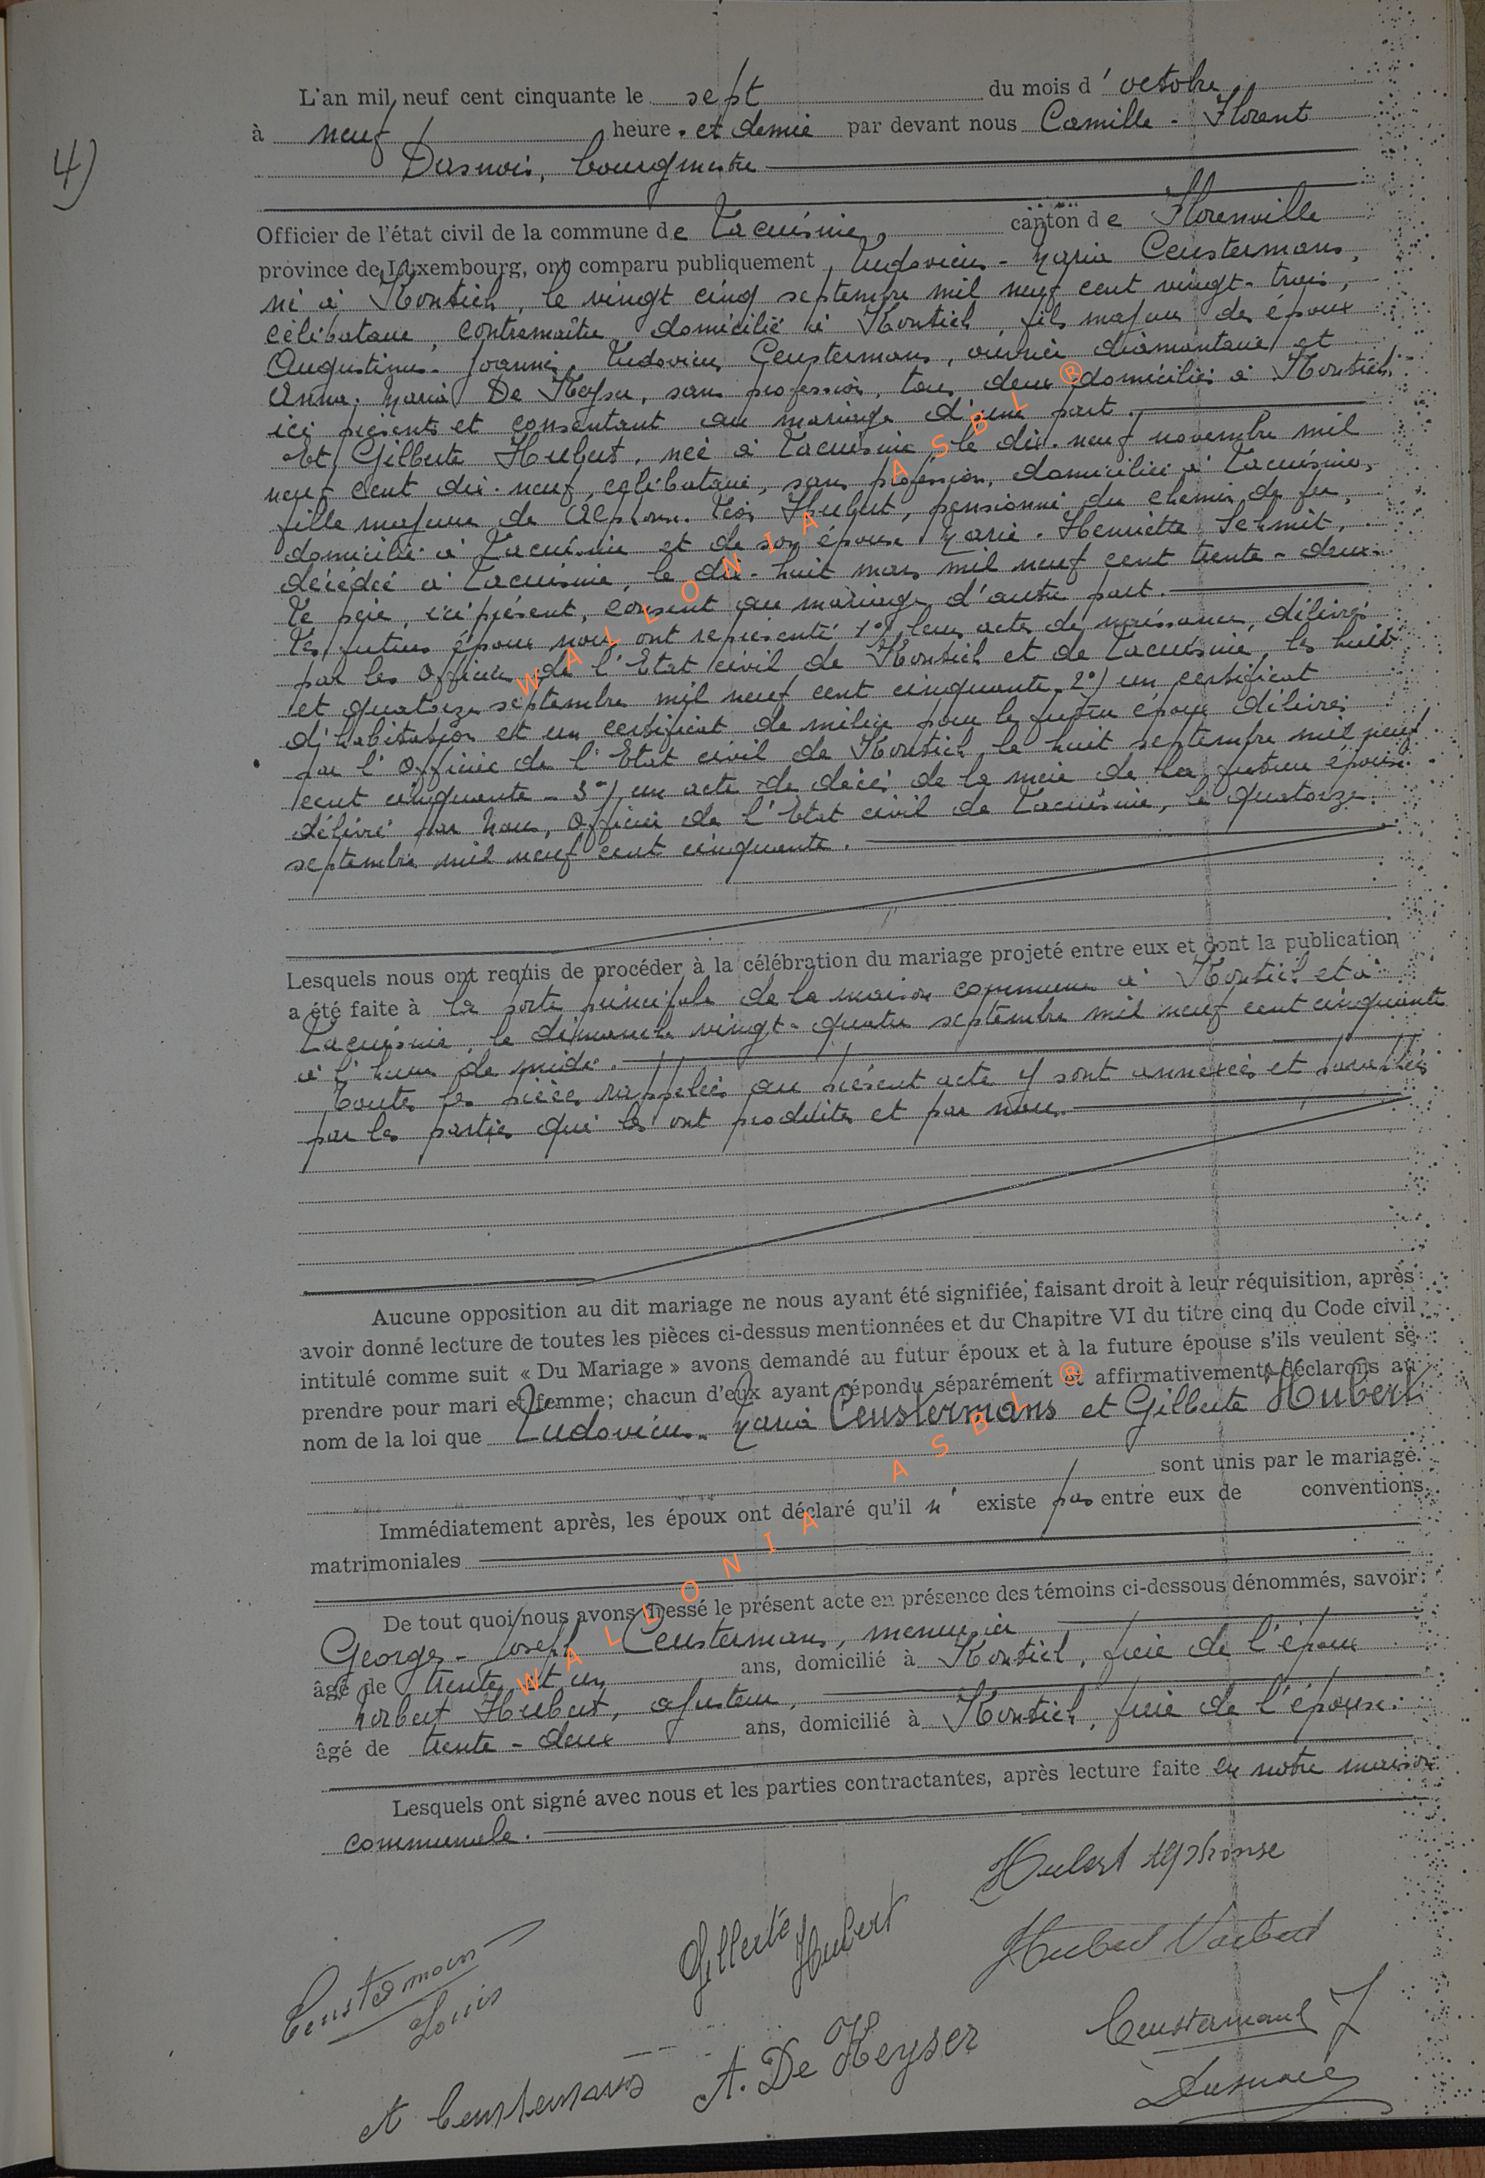 4)
L'an mil neuf cent cinquante le sept du mois d'octobre
à neuf heure. et demie par devant nous Camille - Florent
Dasnois, bourgmestre
Officier de l'état civil de la commune de Lacuisine, canton de Florenville
province de Luxembourg, ont comparu publiquement, Ludovicus - Maria Ceustermans,
né à Kontich, le vingt cinq septembre mil neuf cent vingt-trois,
célibataire, contremaître, domicilié à Kontich, fils majeur des époux
Augustinus - Joannes, Ludovicus Ceustermans, ouvrier diamantaire et
Anna, Maria De Keyser, sans profession, tous deux domiciliés à Kontich
ici présents et consentant au mariage d'une part.
Et, Gilberte Hubert, née à Lacuisine, le dix-neuf novembre mil
neuf cent dix-neuf, célibataire, sans profession, domiciliée à Lacuisine,
fille majeure de Alphonse Léon Hubert, pensionné du chemin de fer,
domicilié à Lacuisine et de son épouse Marie-Henriette Schmit,
décédée à Lacuisine, le dix-huit mars mil neuf cent trente-deux.
Le père, ici présent, consent au mariage d'autre part.
Les futurs époux nous ont représenté 1°/ leurs actes de naissance, délivrés
par les Officiers de l'Etat civil de Kontich et de Lacuisine, les huit
et quatorze septembre mil neuf cent cinquante, 2°/ un certificat
d'habitation et un certificat de milice pour le futur époux délivrés
par l'Officier de l'Etat civil de Kontich, le huit septembre mil neuf
cent cinquante - 3°/ un acte de décès de la mère de la future épouse
délivré par Nous, Officier de l'Etat civil de Lacuisine, le quatorze
septembre mil neuf cent cinquante.
Lesquels nous ont requis de procéder à la célébration du mariage projeté entre eux et dont la publication
a été faite à la porte principale de la maison commune à Kontich et à
Lacuisine, le dimanche vingt-quatre septembre mil neuf cent cinquante
à l'heure de midi.
Toutes les pièces rappelées au présent acte y sont annexées et paraphées
par les parties qui les ont produites et par nous.
Aucune opposition au dit mariage ne nous ayant été signifiée, faisant droit à leur réquisition, après
avoir donné lecture de toutes les pièces ci-dessus mentionnées et du Chapitre VI du titre cinq du Code civil
intitulé comme suit « Du Mariage » avons demandé au futur époux et à la future épouse s'ils veulent se
prendre pour mari et femme; chacun d'eux ayant répondu séparément et affirmativement déclarons au
nom de la loi que Ludovicus - Maria Ceustermans et Gilberte Hubert
sont unis par le mariage.
Immédiatement après, les époux ont déclaré qu'il n' existe pas entre eux de conventions
matrimoniales
De tout quoi nous avons dressé le présent acte en présence des témoins ci-dessous dénommés, savoir:
Georges - Joseph Ceustermans, menuisier
âgé de trente et un ans, domicilié à Kontich, frère de l'époux
Norbert Hubert, ajusteur,
âgé de trente-deux ans, domicilié à Kontich, frère de l'épouse.
Lesquels ont signé avec nous et les parties contractantes, après lecture faite en notre maison
communale.
Hubert Alphonse
Gilberte Hubert
Hubert Norbert
Ceustermans Louis
Ceustermans J
A. De Keyser
A Ceustermans
Dasnois
WALLONIA ASBL ®
WALLONIA ASBL ®